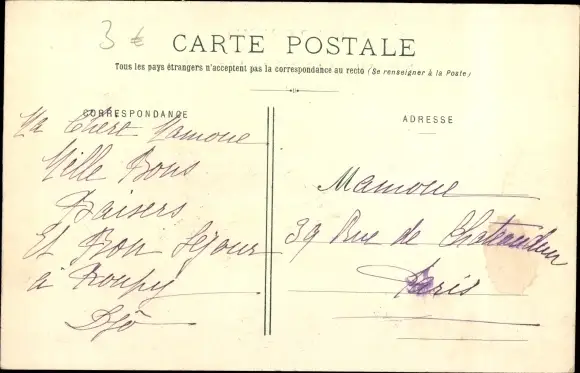 3 €
CARTE POSTALE
Tous les pays étrangers n'acceptent pas la correspondance au recto (Se renseigner à la Poste)
CORRESPONDANCE
Ma Chère Mamoue
Mille Bons
Baisers
Et Bon Séjour
à
ADRESSE
Mamoue
39 Rue de Chateaudun
Paris